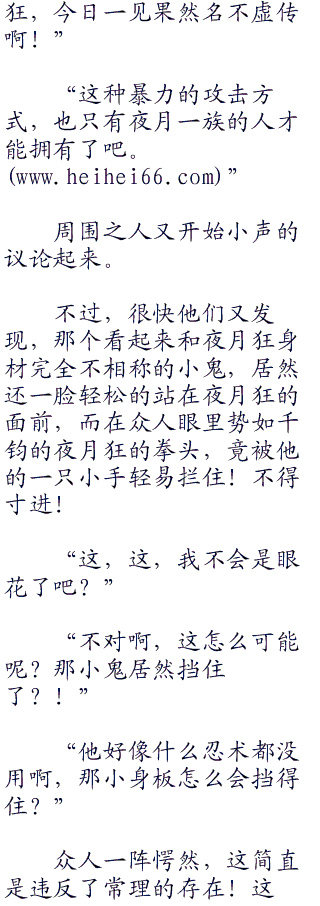 狂，今日一见果然名不虚传
啊！”
“这种暴力的攻击方
式，也只有夜月一族的人才
能拥有了吧。
(www.heihei66.com)”
周围之人又开始小声的
议论起来。
不过，很快他们又发
现，那个看起来和夜月狂身
材完全不相称的小鬼，居然
还一脸轻松的站在夜月狂的
面前，而在众人眼里势如千
钧的夜月狂的拳头，竟被他
的一只小手轻易拦住！不得
寸进！
“这，这，我不会是眼
花了吧？”
“不对啊，这怎么可能
呢？那小鬼居然挡住
了？！”
“他好像什么忍术都没
用啊，那小身板怎么会挡得
住？”
众人一阵愕然，这简直
是违反了常理的存在！这